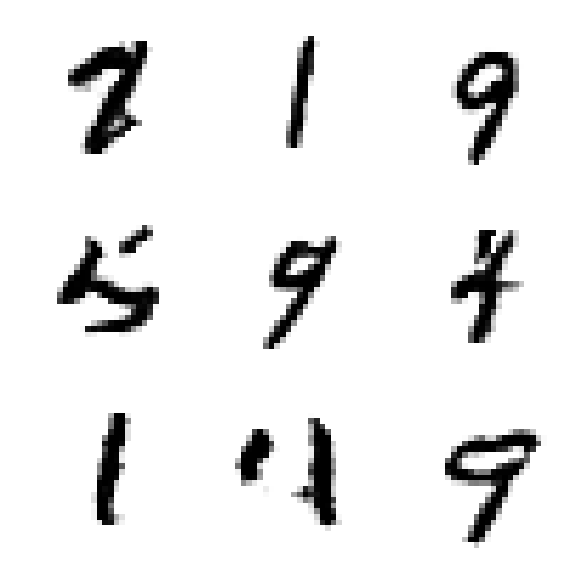 2 1 9
5 9 4
1 4 9